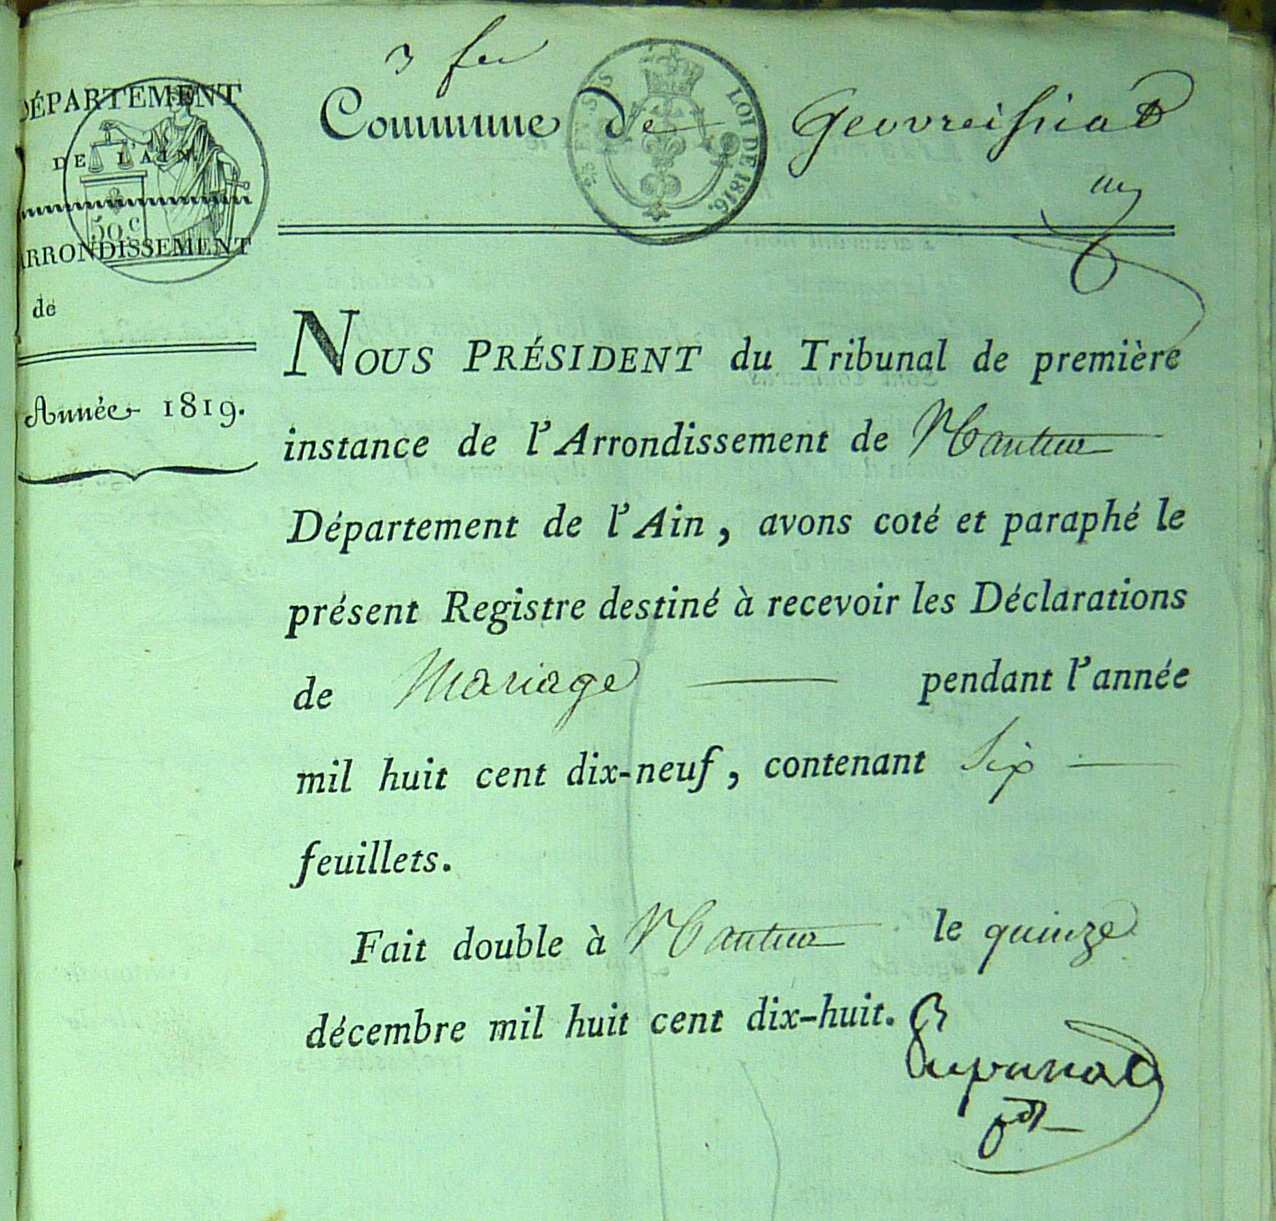 3 fer
DÉPARTEMENT
DE L'AIN.
50 c
ARRONDISSEMENT
de
Année 1819.
Commune de Geovreissiat
LOI DE 1816.
NOUS PRÉSIDENT du Tribunal de première
instance de l'Arrondissement de Nantua
Département de l'Ain, avons coté et paraphé le
présent Registre destiné à recevoir les Déclarations
de Mariage pendant l'année
mil huit cent dix-neuf, contenant Six
feuillets.
Fait double à Nantua le quinze
décembre mil huit cent dix-huit.